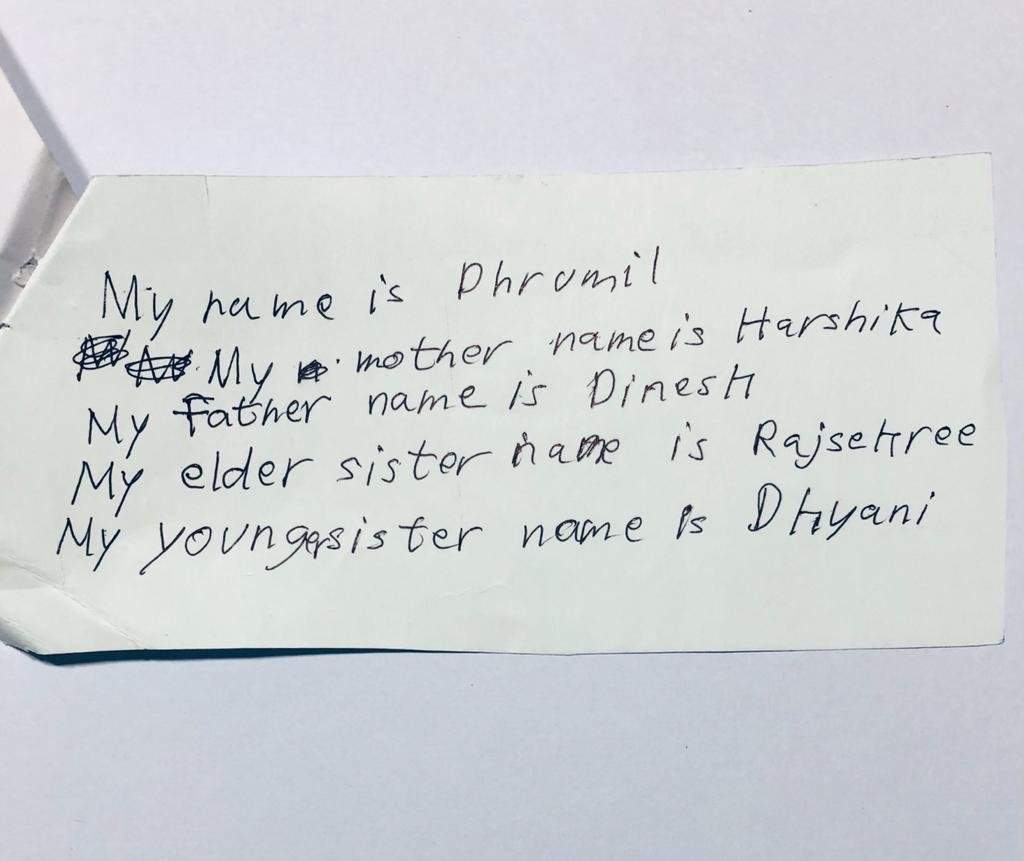 My name is Dhrumil
My mother name is Harshika
My Father name is Dinesh
My elder sister name is Rajsehree
My younger sister name is Dhyani